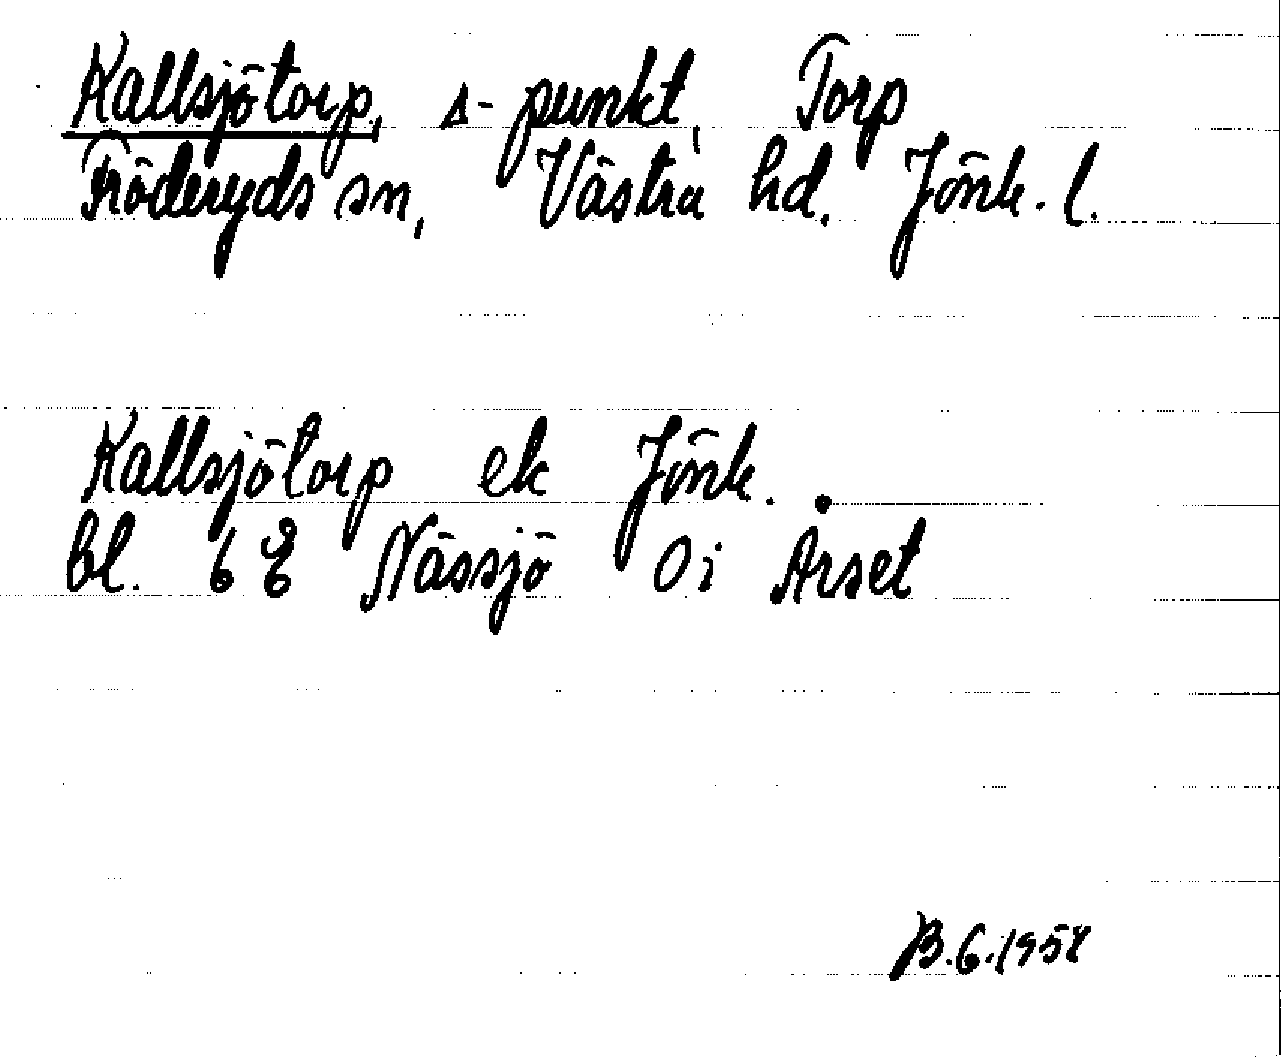 Kallsjötorp, Δ-punkt, Torp
Fröderyds sn, Västra hd. Jönk. l.
Kallsjötorp ek Jönk.
bl. 6 E Nässjö 0i Årset
B.G. 1958